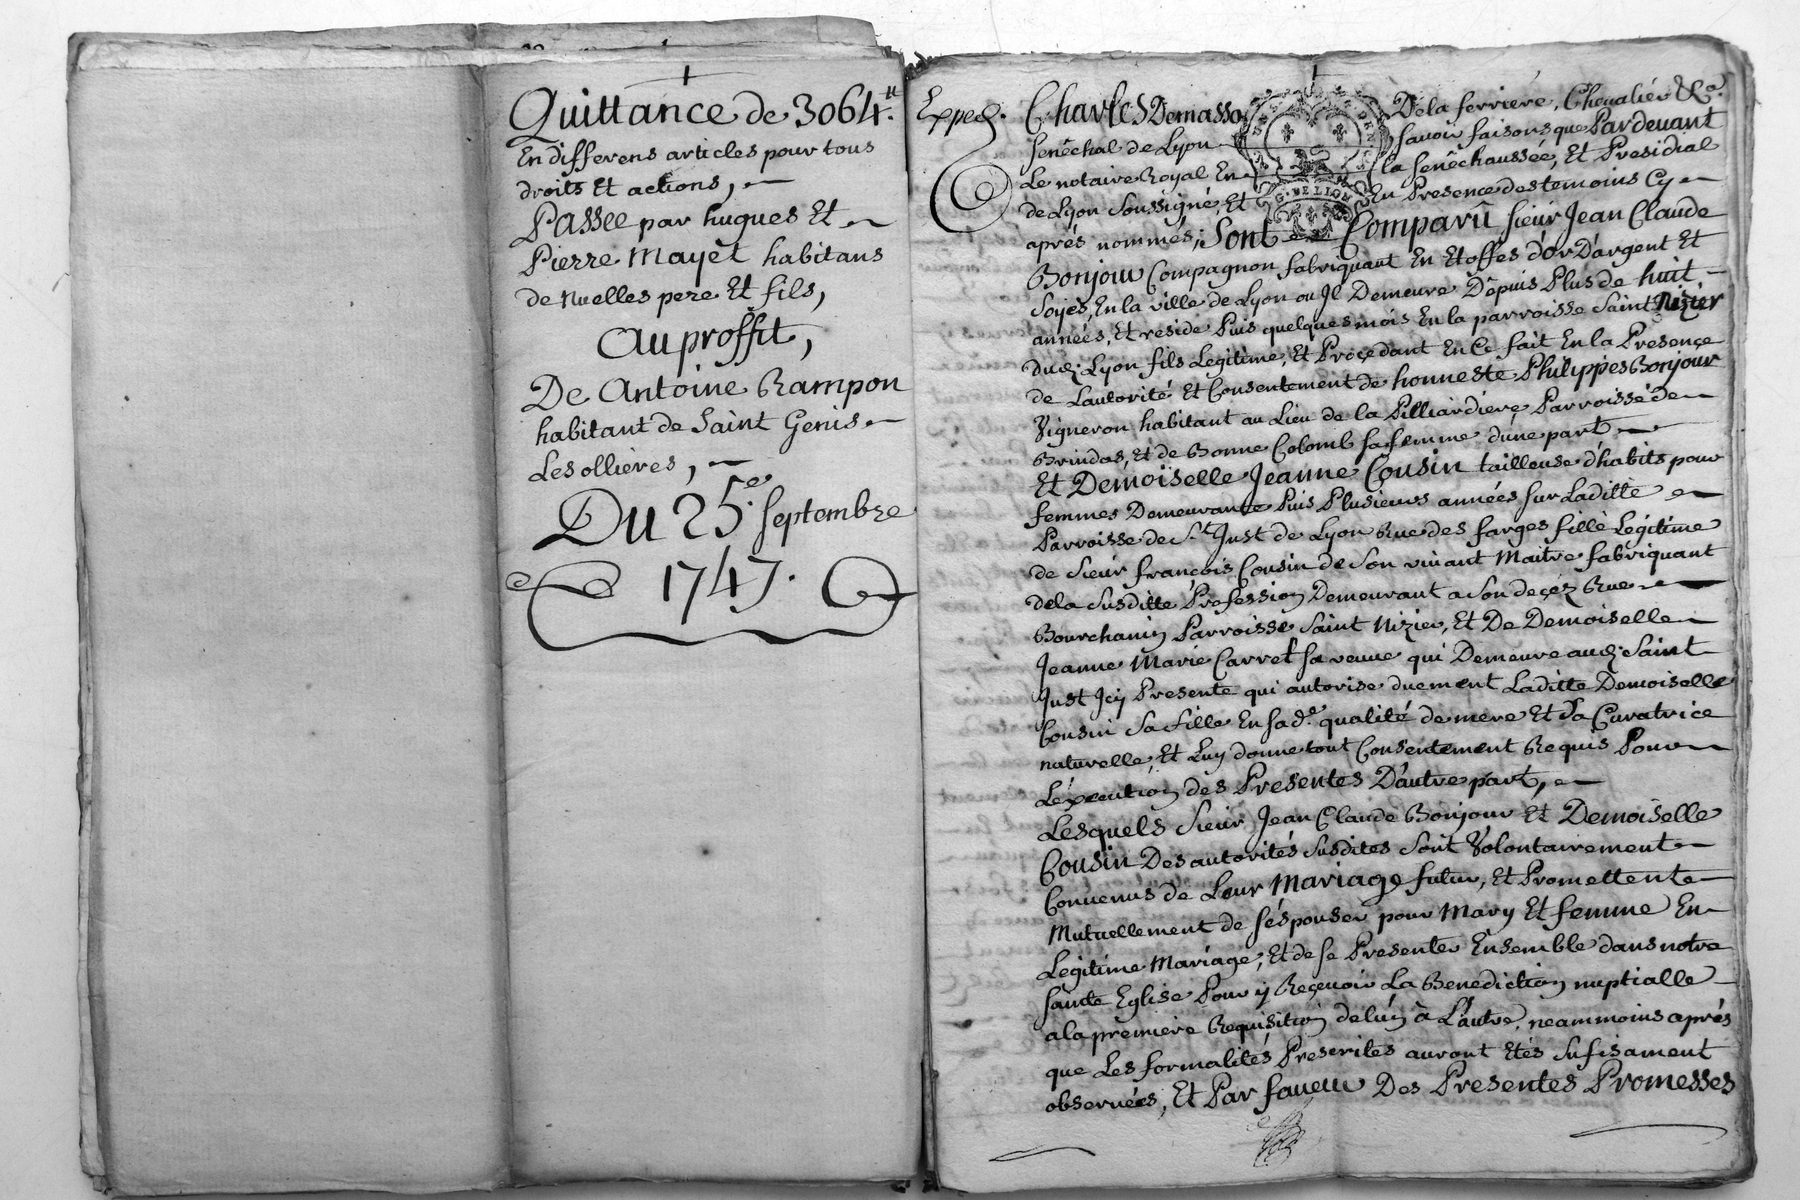 Quittance de 3064.ᵗᵗ
En differens articles pour tous
droits Et actions,
PAssée par hugues Et
Pierre Mayet habitans
de Nuelles pere Et fils,
Au proffit,
De Antoine Rampon
habitant de Saint Genis
Les ollières,
Du 25.ᵉ Septembre
1747.
Exped.
Charles Demasso Dela ferriere, Chevalier &c.ᵃ
senêchal de Lyon savoir faisons que Pardevant
Le notaire Royal En la senêchaussée, Et Presidial
de Lyon Soussigné, Et En Presence des temoins Cy
aprés nommés; Sont Comparû sieur Jean Claude
Bonjour Compagnon fabriquant En Etoffes d'or D'argent Et
Soyes, En la ville de Lyon ou Jl Demeure Dépuis Plus de huit
années, Et reside Puis quelques mois En la parroisse Saint Nizier
dud. Lyon fils Legitime, Et Procedant En Ce fait En la Presence
de Lautorité Et Consentement de honneste Philippes Bonjour
Vigneron habitant au Lieu de la Pilliardiere Parroisse de
Brindas, Et de Bonne Colomb sa femme d'une part
Et Demoiselle Jeanne Cousin tailleuse d'habits pour
femmes Demeurante Puis Plusieurs années sur Laditte
Parroisse de S.ᵗ Just de Lyon Rue des farges fille Legitime
de Sieur françois Cousin de Son vivant Maitre fabriquant
dela Susditte Profession Demeurant a Son decéz Rue
Bourchanin Parroisse Saint Nizier, Et De Demoiselle
Jeanne Marie Carret sa veuve qui Demeure aud. Saint
Just Jcy Presente qui autorise duement Laditte Demoiselle
Cousin Sa fille En sa d.ᵉ qualité de mere Et Sa Curatrice
naturelle, Et Luy donne tout Consentement Requis Pour
L'éxecution des Presentes D'autre part,
Lesquels Sieur Jean Claude Bonjour Et Demoiselle
Cousin Des autorités Susdites Sont Volontairement
Convenus de Leur Mariage futur, Et Promettent
Mutuellement de s'éspouser pour Mary Et femme En
Legitime Mariage, Et de se Presenter Ensemble dans notre
sainte Eglise Pour y Reçevoir La Benediction nuptialle
a la premiere Requisition de l'un à L'autre, neammoins aprés
que Les formalités Prescrites auront Etés Sufisament
observées, Et Par faveur Des Presentes Promesses